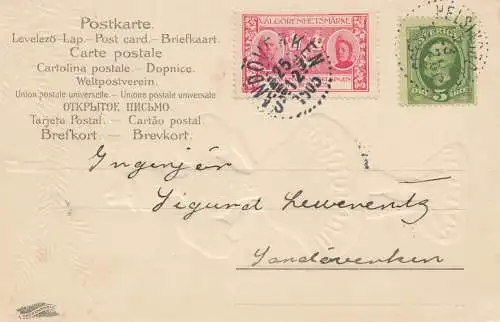 Postkarte.
Levelező-Lap. — Post card. — Briefkaart.
Carte postale
Cartolina postale. — Dopnice.
Weltpostverein.
Union postale universelle. — Unione postale universale
ОТКРЫТОЕ ПИСЬМО
Tarjeta Postal. — Cartão postal.
Brefkort. — Brevkort.
VÄLGÖRENHETSMÄRKE
SVERIGE
5
Ingenjör
Sigurd Lewerentz
Sandöverken